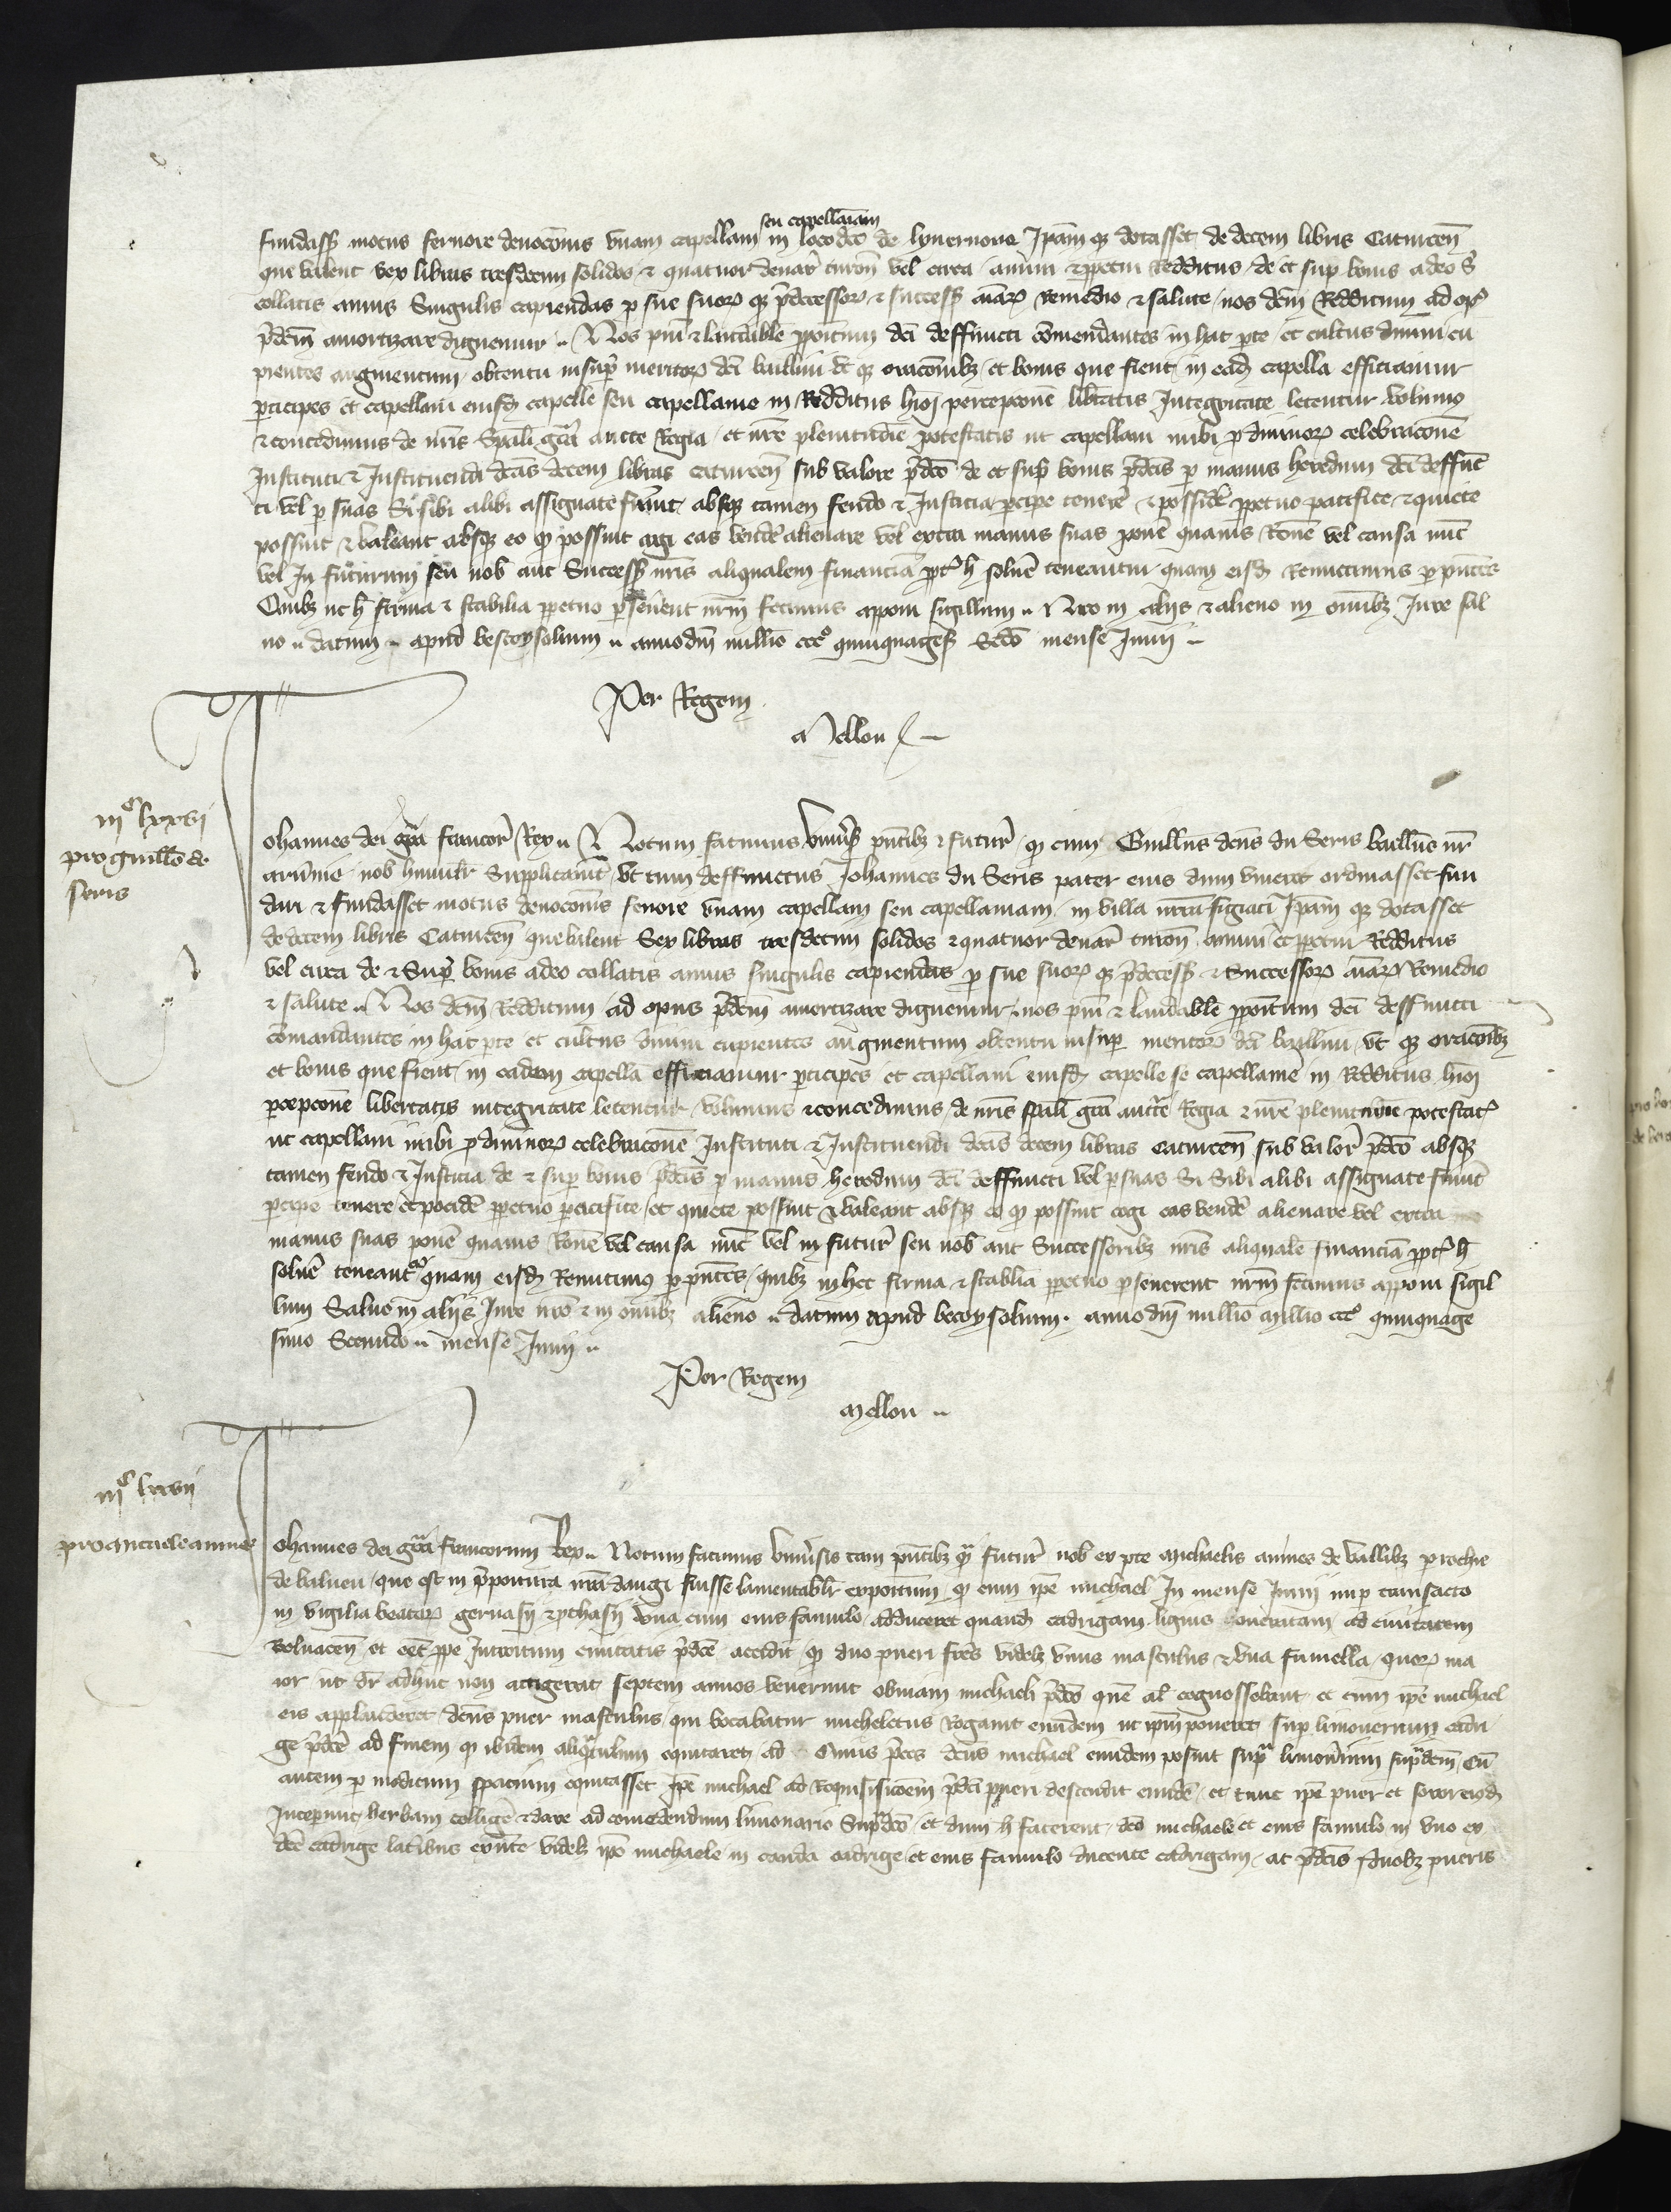 seu capellaniam
fundass motus fervore devocois unam capellam in loco dco de lyvernone Ipam q dotasset de decem libris Caturcen
que valent sex libras tresdecim solidos & quatuor denar turon vel circa annui & ppetui Redditus de et sup bonis a deo s
collatis annis Singulis capiendas p sue suor q pdecessor & success aiar remedio & salute nos dcm Redditum ad op
pdcm amortizare dignemur Nos pium & laudabile ppoitum dci deffuncti comendantes in hac pte et cultus divini cu
pientes augmentum obtentu insup meritor dci baillivi et q oracoibz et bonis que fient in ead capella efficiamur
pticipes et capellani eiusd capelle seu capellanie in Redditus hioi percepcone libtatis Integritate letentur volumus
& concedimus de nris Spali gra aucte Regia et nre plenitudie potestatis ut capellani inibi p divinor celebracone
Instituti & Instituendi dcas decem libras caturcen sub valore pdco de et sup bonis pdcis p manus heredum dci deffunc
ti vel p suas Si sibi alibi assignate fuint absq tamen feudo & Justicia pcipe tenere & possidere ppetuo pacifice & quiete
possint & valeant absq eo q possint cogi eas vende alienare vel extra manus suas pone quavis Rone vel causa nuc
vel In futurum seu nob aut Success nris aliqualem financia ppt h solve teneantur quam eisd Remittimus p pntes
Quibz ut h firma & stabilia ppetuo pseverent nrm fecimus apponi sigillum Nro in aliis & alieno in omibz Jure sal
vo datum apud bescoysolium anno dni millio ccc° quinquages Scdo mense Junii
Per Regem
Mellou
iii^c lxxvi
pro guillo de
seris
Johannes dei gra francor Rex Notum facimus Univs pntibz & futur q cum Guillus dcus du Seris baillivus nr
arvnie nob humilr Supplicavit Ut cum deffunctus Johannes du Seris pater eius dum viveret ordinasset fun
dari & fundasset motus devocois fervore unam capellam seu capellaniam in villa nra figiaci Ipam q dotasset
de decem libris Caturcen que valent Sex libras tresdecim solidos & quatuor denar turon annui et ppetui Redditus
vel circa de & Sup bonis a deo collatis annis singulis capiendas p sue suor q pdecess & Successor aiar Remedio
& salute Nos dcm Redditum ad opus pdcm amortizare dignemur nos pium & laudabile ppoitum dci deffuncti
comandantes in hac pte et cultus divini cupientes augmentum obtentu insup meritor dci baillivi ut q oracoibz
et bonis que fient in eadem capella efficiamur pticipes et capellani eiusd capelle se capellanie in Redditus hioi
pcepcone libertatis integritate letentur volumus & concedimus de nris spali gra aucte Regia & nre plenitudie potestat
ut capellani inibi p divinor celebracone Instituti & Instituendi dcas decem libras caturcen sub valor pdco absq
tamen feudo & Justicia de & sup bonis pdcis p manus heredum dci deffuncti vel p suas Si Sibi alibi assignate fuint
pcipe tenere et pocide ppetuo pacifice et quiete possint & valeant absq eo q possint cogi eas vende alienare vel extra
manus suas pone quavis Rone vel causa nuc vel in futur seu nob aut Successoribz nris aliquale financia ppt h
solve teneant quam eisd Remittimus p pntes quibz ut hec firma & stablia ppetuo pseverent nrm fecimus apponi sigil
lum Salvo in aliis Jure nro & in omibz alieno datum apud becoysolium anno dni millio millio ccc° quinquage
simo Secundo mense Junii
Per Regem
Mellou
iii^c lxxvii
Johannes dei gra francorum Rex Notum facimus Univsis tam pntibz q futur nob ex pte Michaelis annes de vallibz prochie
de balneu que est in ppoitura nra dangi fuisse lamentabilr expoitum q cum ipe michael In mense Junii nup transacto
in vigilia beator gervasii & pthasii una cum eius famulo adduceret quand cadrigam lignis honeratam ad civitatem
belvacen et eet ppe Introitum civitatis pdce accidit q duo pueri fres videlz unus masculus & una fumella quor ma
ior ut dr adhuc non attigerat septem annos venerunt obviam michaeli pdco que al cognossebant et cum ipe michael
eis applauderet dcus puer masculus qui vocabatur micheletus Rogavit eumdem ut ipm poneret sup limonerium cadri
ge pdce ad finem q ibidem aliqtulum equitaret ad Cuius pces dcus michael eumdem posuit sup limonerium supdcm Cu
autem p modicum spacium equitasset Ipe michael ad Requisicoem pdci pueri descendit eumde et tunc ipe puer et soror eiusd
Inceperunt herbam collige & dare ad comedendum limonario Supdco et dum h facerent dco michaele et eius famulo in uno ex
dce cadrige latibus exnte videlz ipo michaele in cauda cadrige et eius famulo ducente cadrigam ac pdcis duobz pueris